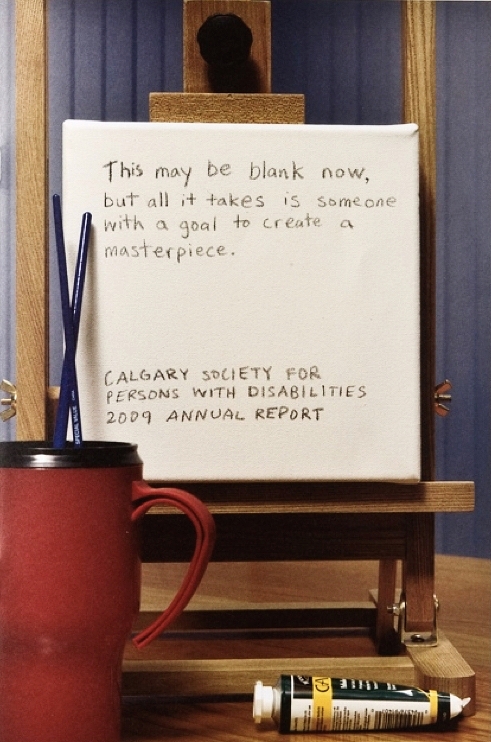 This may be blank now,
but all it takes is someone
with a goal to create a
masterpiece.
CALGARY SOCIETY FOR
PERSONS WITH DISABILITIES
2009 ANNUAL REPORT
SPECIAL VALUE